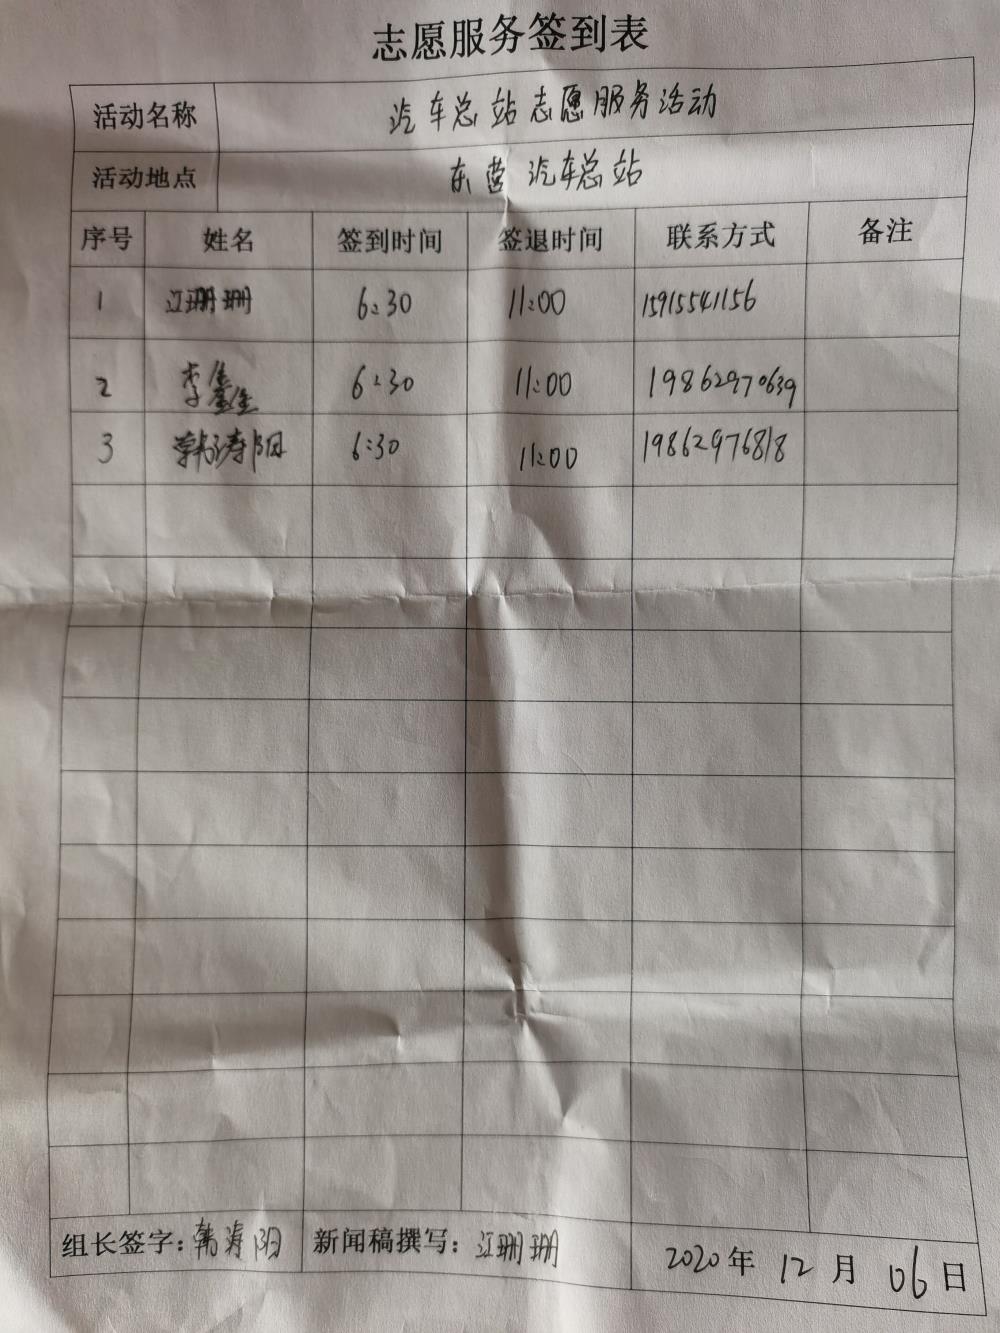 志愿服务签到表
活动名称 汽车总站志愿服务活动
活动地点 东营汽车总站
序号 姓名 签到时间 签退时间 联系方式 备注
1 江珊珊 6:30 11:00 15915541156
2 李鑫鑫 6:30 11:00 19862970639
3 韩涛阳 6:30 11:00 19862976818
组长签字:韩涛阳 新闻稿撰写:江珊珊 2020年12月06日